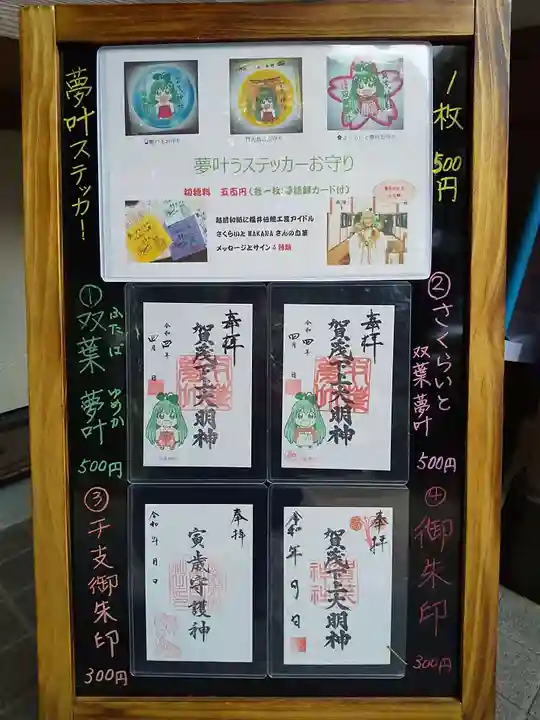 夢叶ステッカー!
1枚
500円
夢叶うステッカーお守り
初穂料 五百円(各一枚:御祈願カード付)
越前和紙に福井伝統工芸アイドル
さくらいと WAKANA さんの直筆
メッセージとサイン4種類
① 双葉 夢叶
ふたば ゆめか
500円
② さくらいと
双葉夢叶
500円
奉拝
賀茂下上大明神
令和四年
四月 日
奉拝
賀茂下上大明神
令和四年
四月 日
③ 干支御朱印
300円
④ 御朱印
300円
奉拝
寅歳守護神
令和 年 月 日
奉拝
賀茂下上大明神
令和 年 月 日